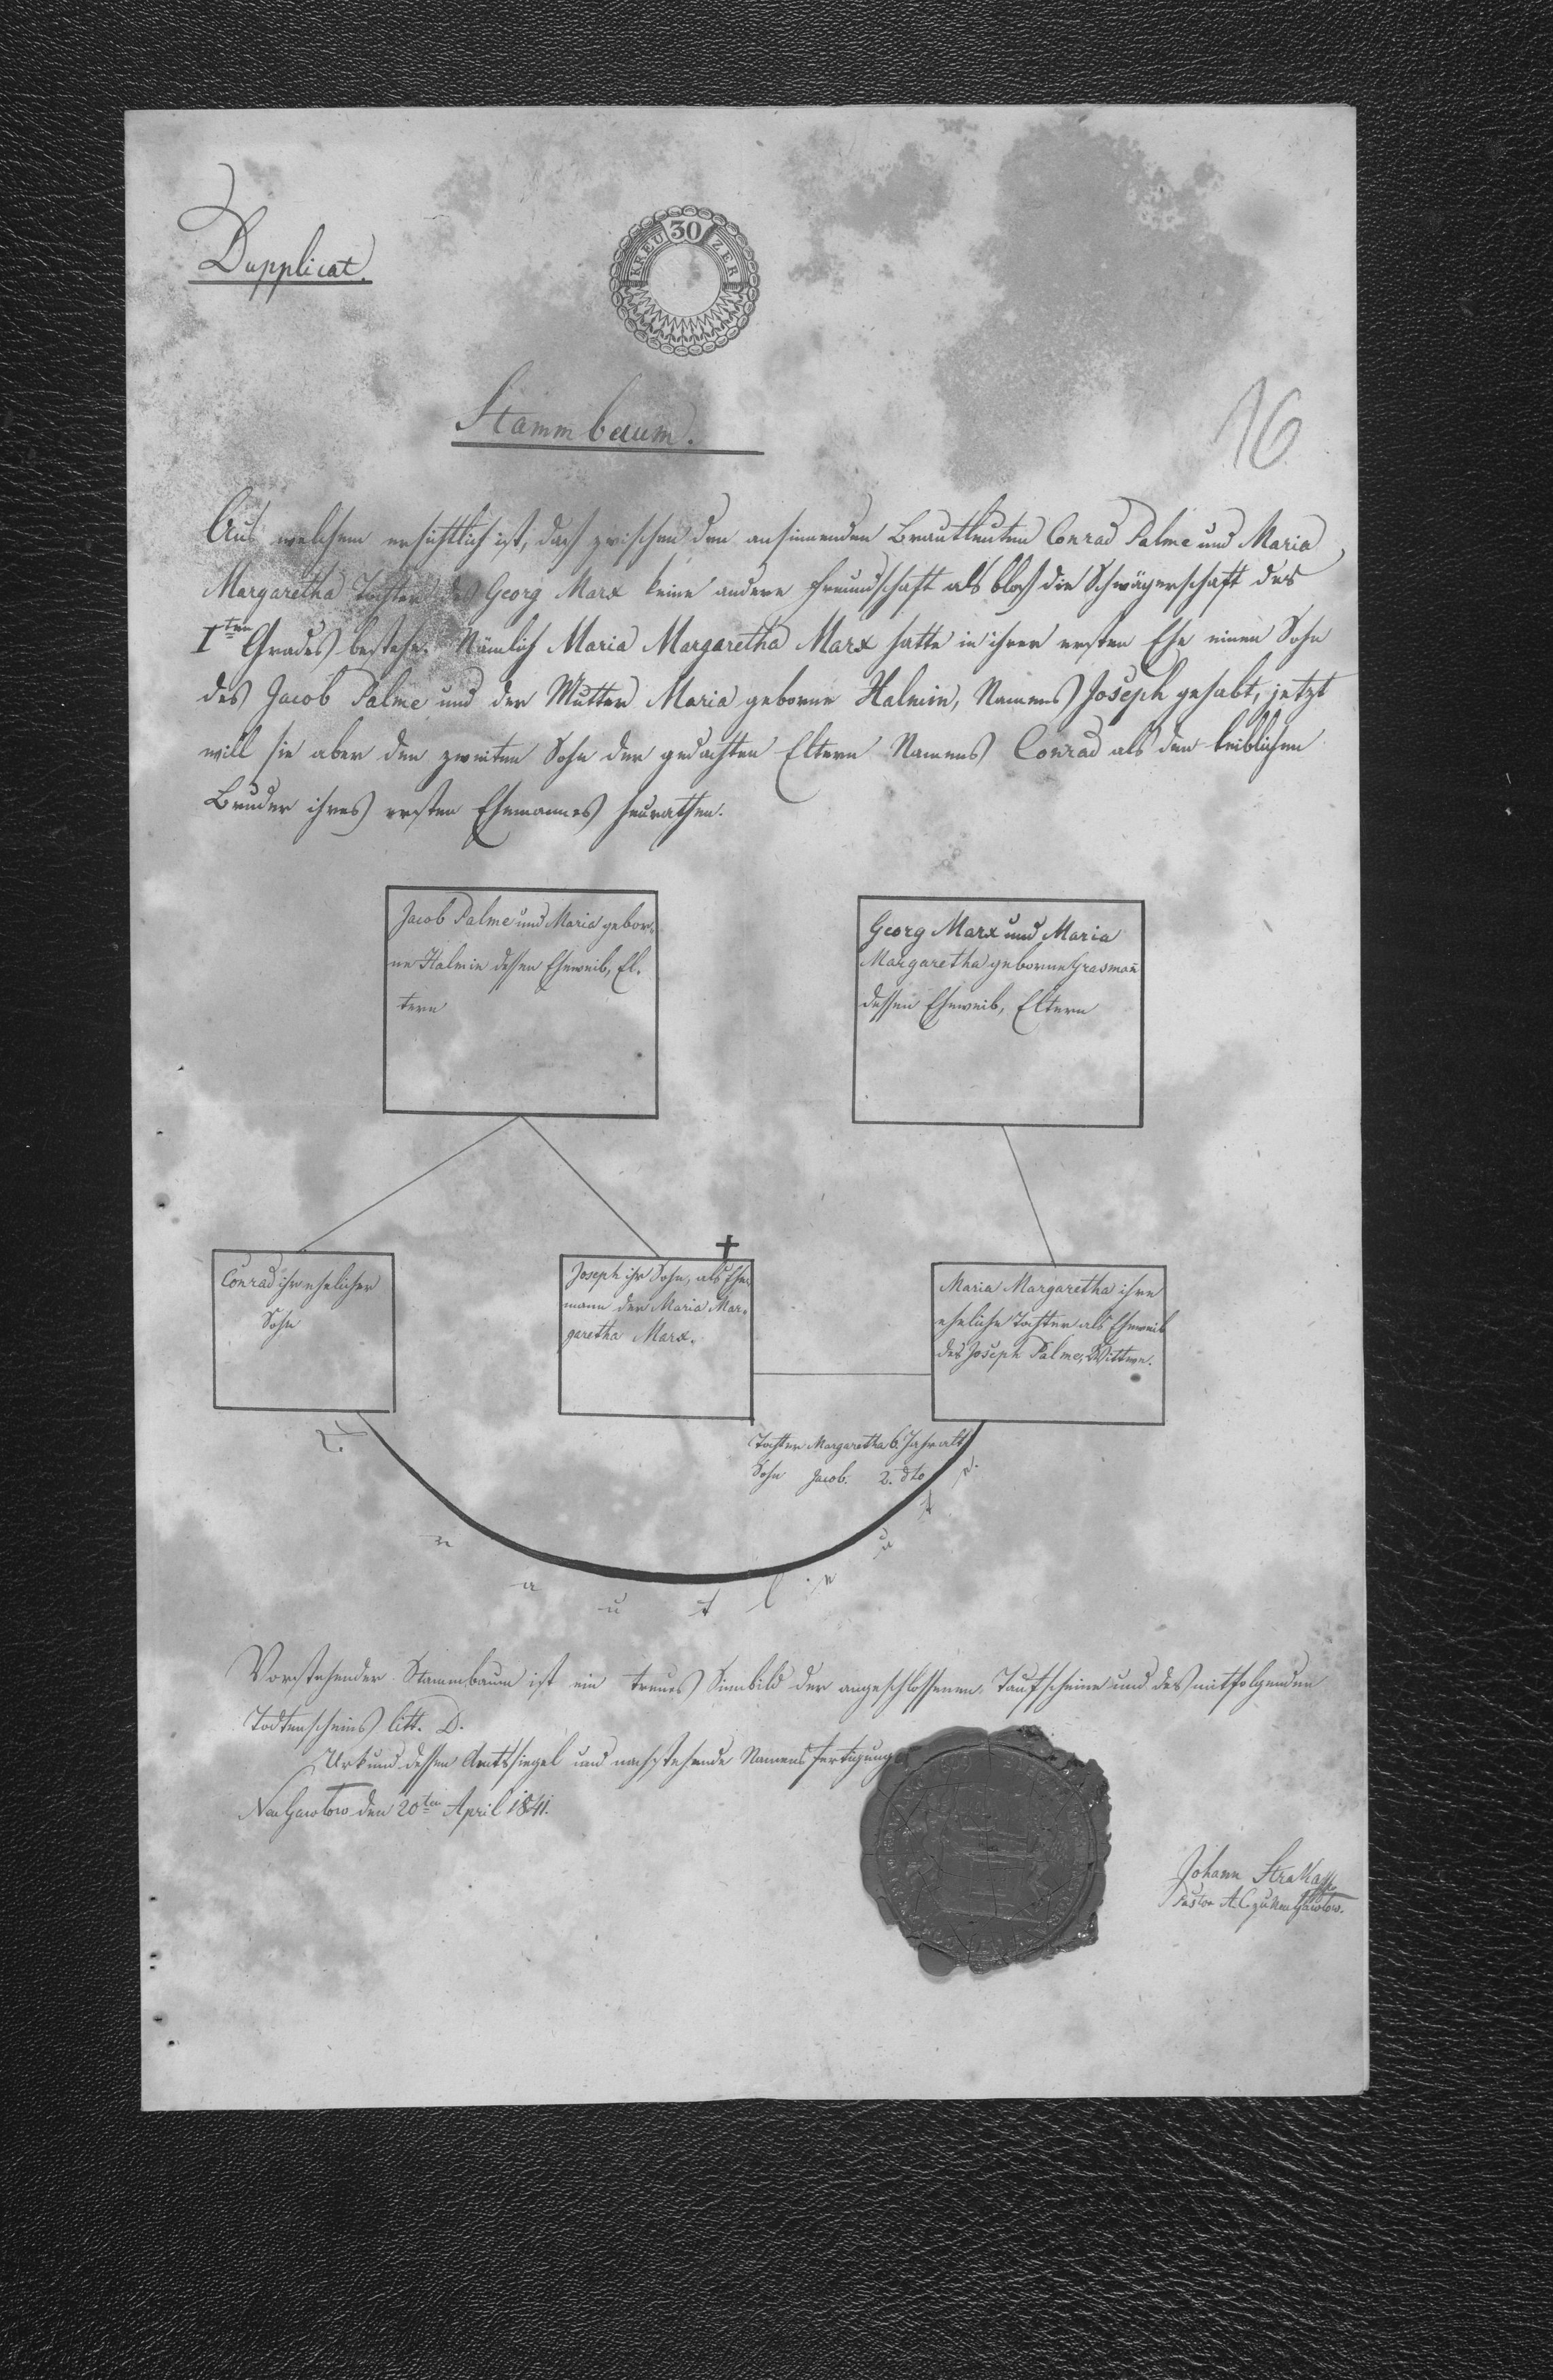 Dupplicat.
30
KREUZER
Stammbaum.
16
Aus welchem ersichtlich ist, daß zwischen den ansinnenden Brautleuten Conrad Palme und Maria
Margaretha Tochter des Georg Marx keine andere Freundschaft als bloß die Schwägerschaft des
Iten Grades bestehe. Nämlich Maria Margaretha Marx hatte in ihrer ersten Ehe einen Sohn
des Jacob Palme und der Mutter Maria geborne Halmin, Namens Joseph gehabt, jetzt
will sie aber den zweiten Sohn der gedachten Eltern Namens Conrad als den leiblichen
Bruder ihres ersten Ehemannes heurathen.
Jacob Palme und Maria gebor-
ne Halmin dessen Eheweib, El-
tern
Georg Marx und Maria
Margaretha geborne Grasmañ
dessen Eheweib, Eltern
Conrad ihr ehelicher
Sohn
Joseph ihr Sohn, als Ehe-
mann der Maria Mar-
garetha Marx.
Maria Margaretha ihre
eheliche Tochter als Eheweib
des Joseph Palme, Wittwe.
Tochter Margaretha 6 Jahr alt
Sohn Jacob. 2. dto
Brautleute.
Vorstehender Stammbaum ist ein treues Sinnbild der angeschlossenen Taufscheine und des mitfolgenden
Todtenscheins litt. D.
Urkund dessen Amtssiegel und nachstehende Namensfertigung
Neu Gawlow den 20ten April 1841.
Johann Strakay
Pastor A.C. zu Neu Gawlow.